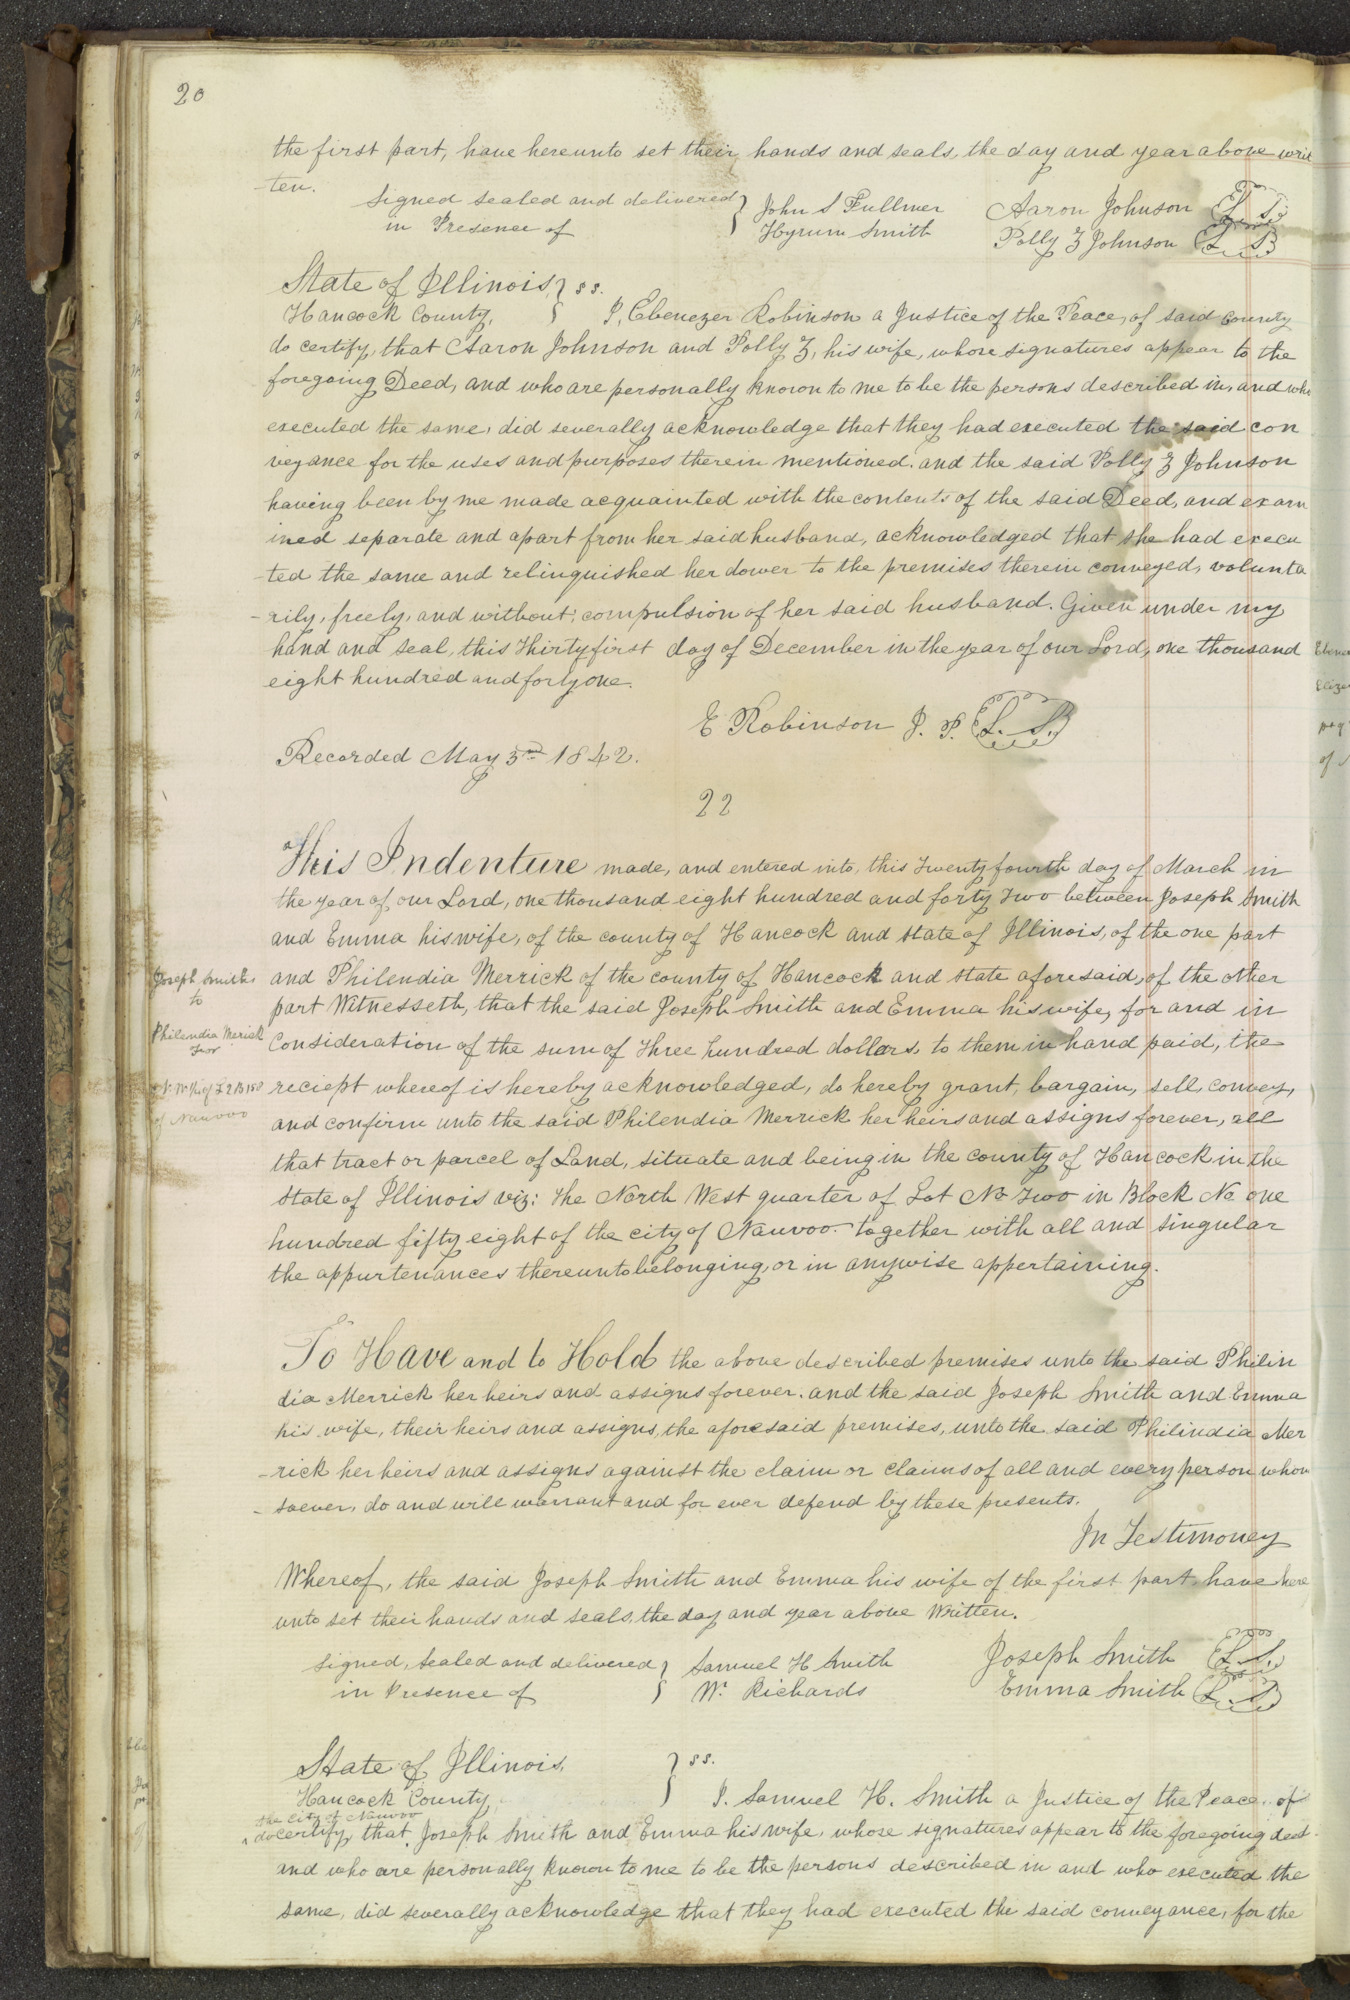 20
the first part, have hereunto set their hands and seals, the day and year above writ
-ten.
Signed sealed and delivered } John S Fullmer Aaron Johnson L. S.
in Presence of } Hyrum Smith Polly Z Johnson L. S.
State of Illinois, } ss.
Hancock County, } I, Ebenezer Robinson a Justice of the Peace, of said County
do certify, that Aaron Johnson and Polly Z, his wife, whose signatures appear to the
foregoing Deed, and who are personally known to me to be the persons described in, and who
executed the same, did severally acknowledge that they had executed the said con
veyance for the uses and purposes therein mentioned. and the said Polly Z Johnson
having been by me made acquainted with the contents of the said Deed, and exam
ined separate and apart from her said husband, acknowledged that she had execu
-ted the same and relinquished her dower to the premises therein conveyed, volunta
-rily, freely, and without compulsion of her said husband. Given under my
hand and seal, this Thirty first day of December in the year of our Lord, one thousand
eight hundred and forty one.
E Robinson J. P. L. S.
Recorded May 3rd 1842.
22
This Indenture made, and entered into, this Twenty fourth day of March in
the year of our Lord, one thousand eight hundred and forty two between Joseph Smith
and Emma his wife, of the county of Hancock and state of Illinois, of the one part
and Philendia Merrick of the county of Hancock and state aforesaid, of the other
part Witnesseth, that the said Joseph Smith and Emma his wife, for and in
Consideration of the sum of three hundred dollars, to them in hand paid, the
reciept whereof is hereby acknowledged, do hereby grant, bargain, sell, convey,
and confirm unto the said Philendia Merrick her heirs and assigns forever, all
that tract or parcel of Land, situate and being in the county of Hancock in the
state of Illinois viz: The North West quarter of Lot No Two in Block No one
hundred fifty eight of the city of Nauvoo. together with all and singular
the appurtenances thereunto belonging, or in anywise appertaining.
Joseph Smith
to
Philendia Merick
N. W. ¼ of L 2 B 158
of Nauvoo
To Have and to Hold the above described premises unto the said Philin
dia Merrick her heirs and assigns forever. and the said Joseph Smith and Emma
his wife, their heirs and assigns, the aforesaid premises, unto the said Philindia Mer
-rick her heirs and assigns against the claim or claims of all and every person whom
-soever, do and will warrant and for ever defend by these presents.
In Testimoney
Whereof, the said Joseph Smith and Emma his wife of the first part, have here
unto set their hands and seals, the day and year above Written.
Signed, Sealed and delivered } Samuel H Smith Joseph Smith L. S.
in Presence of } W. Richards Emma Smith L. S.
State of Illinois, } ss.
Hancock County, } I. Samuel H. Smith a Justice of the Peace, of
the City of Nauvoo
do certify, that Joseph Smith and Emma his wife, whose signatures appear to the foregoing deed
and who are personally known to me to be the persons described in and who executed the
same, did severally acknowledge that they had executed the said conveyance, for the